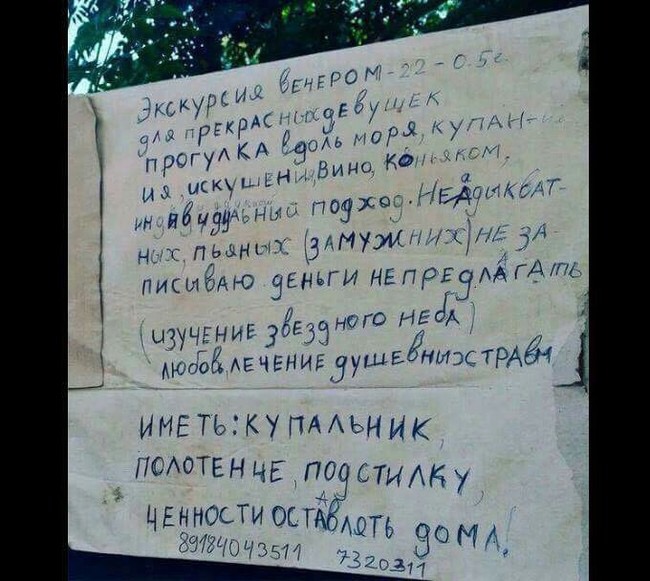 Экскурсия венером-22-0.5г.
для прекрасных девушек
прогулка вдоль моря, купан-
ия, искушения, вино, коньяком,
индивидуальный подход. Неадыкват-
ных, пьяных (замужних) не за-
писываю деньги непредлагать
(изучение звездного неба)
любов, лечение душевних травм
иметь: купальник,
полотенце, подстилку,
ценности оставлять дома!
89184043511 7320311